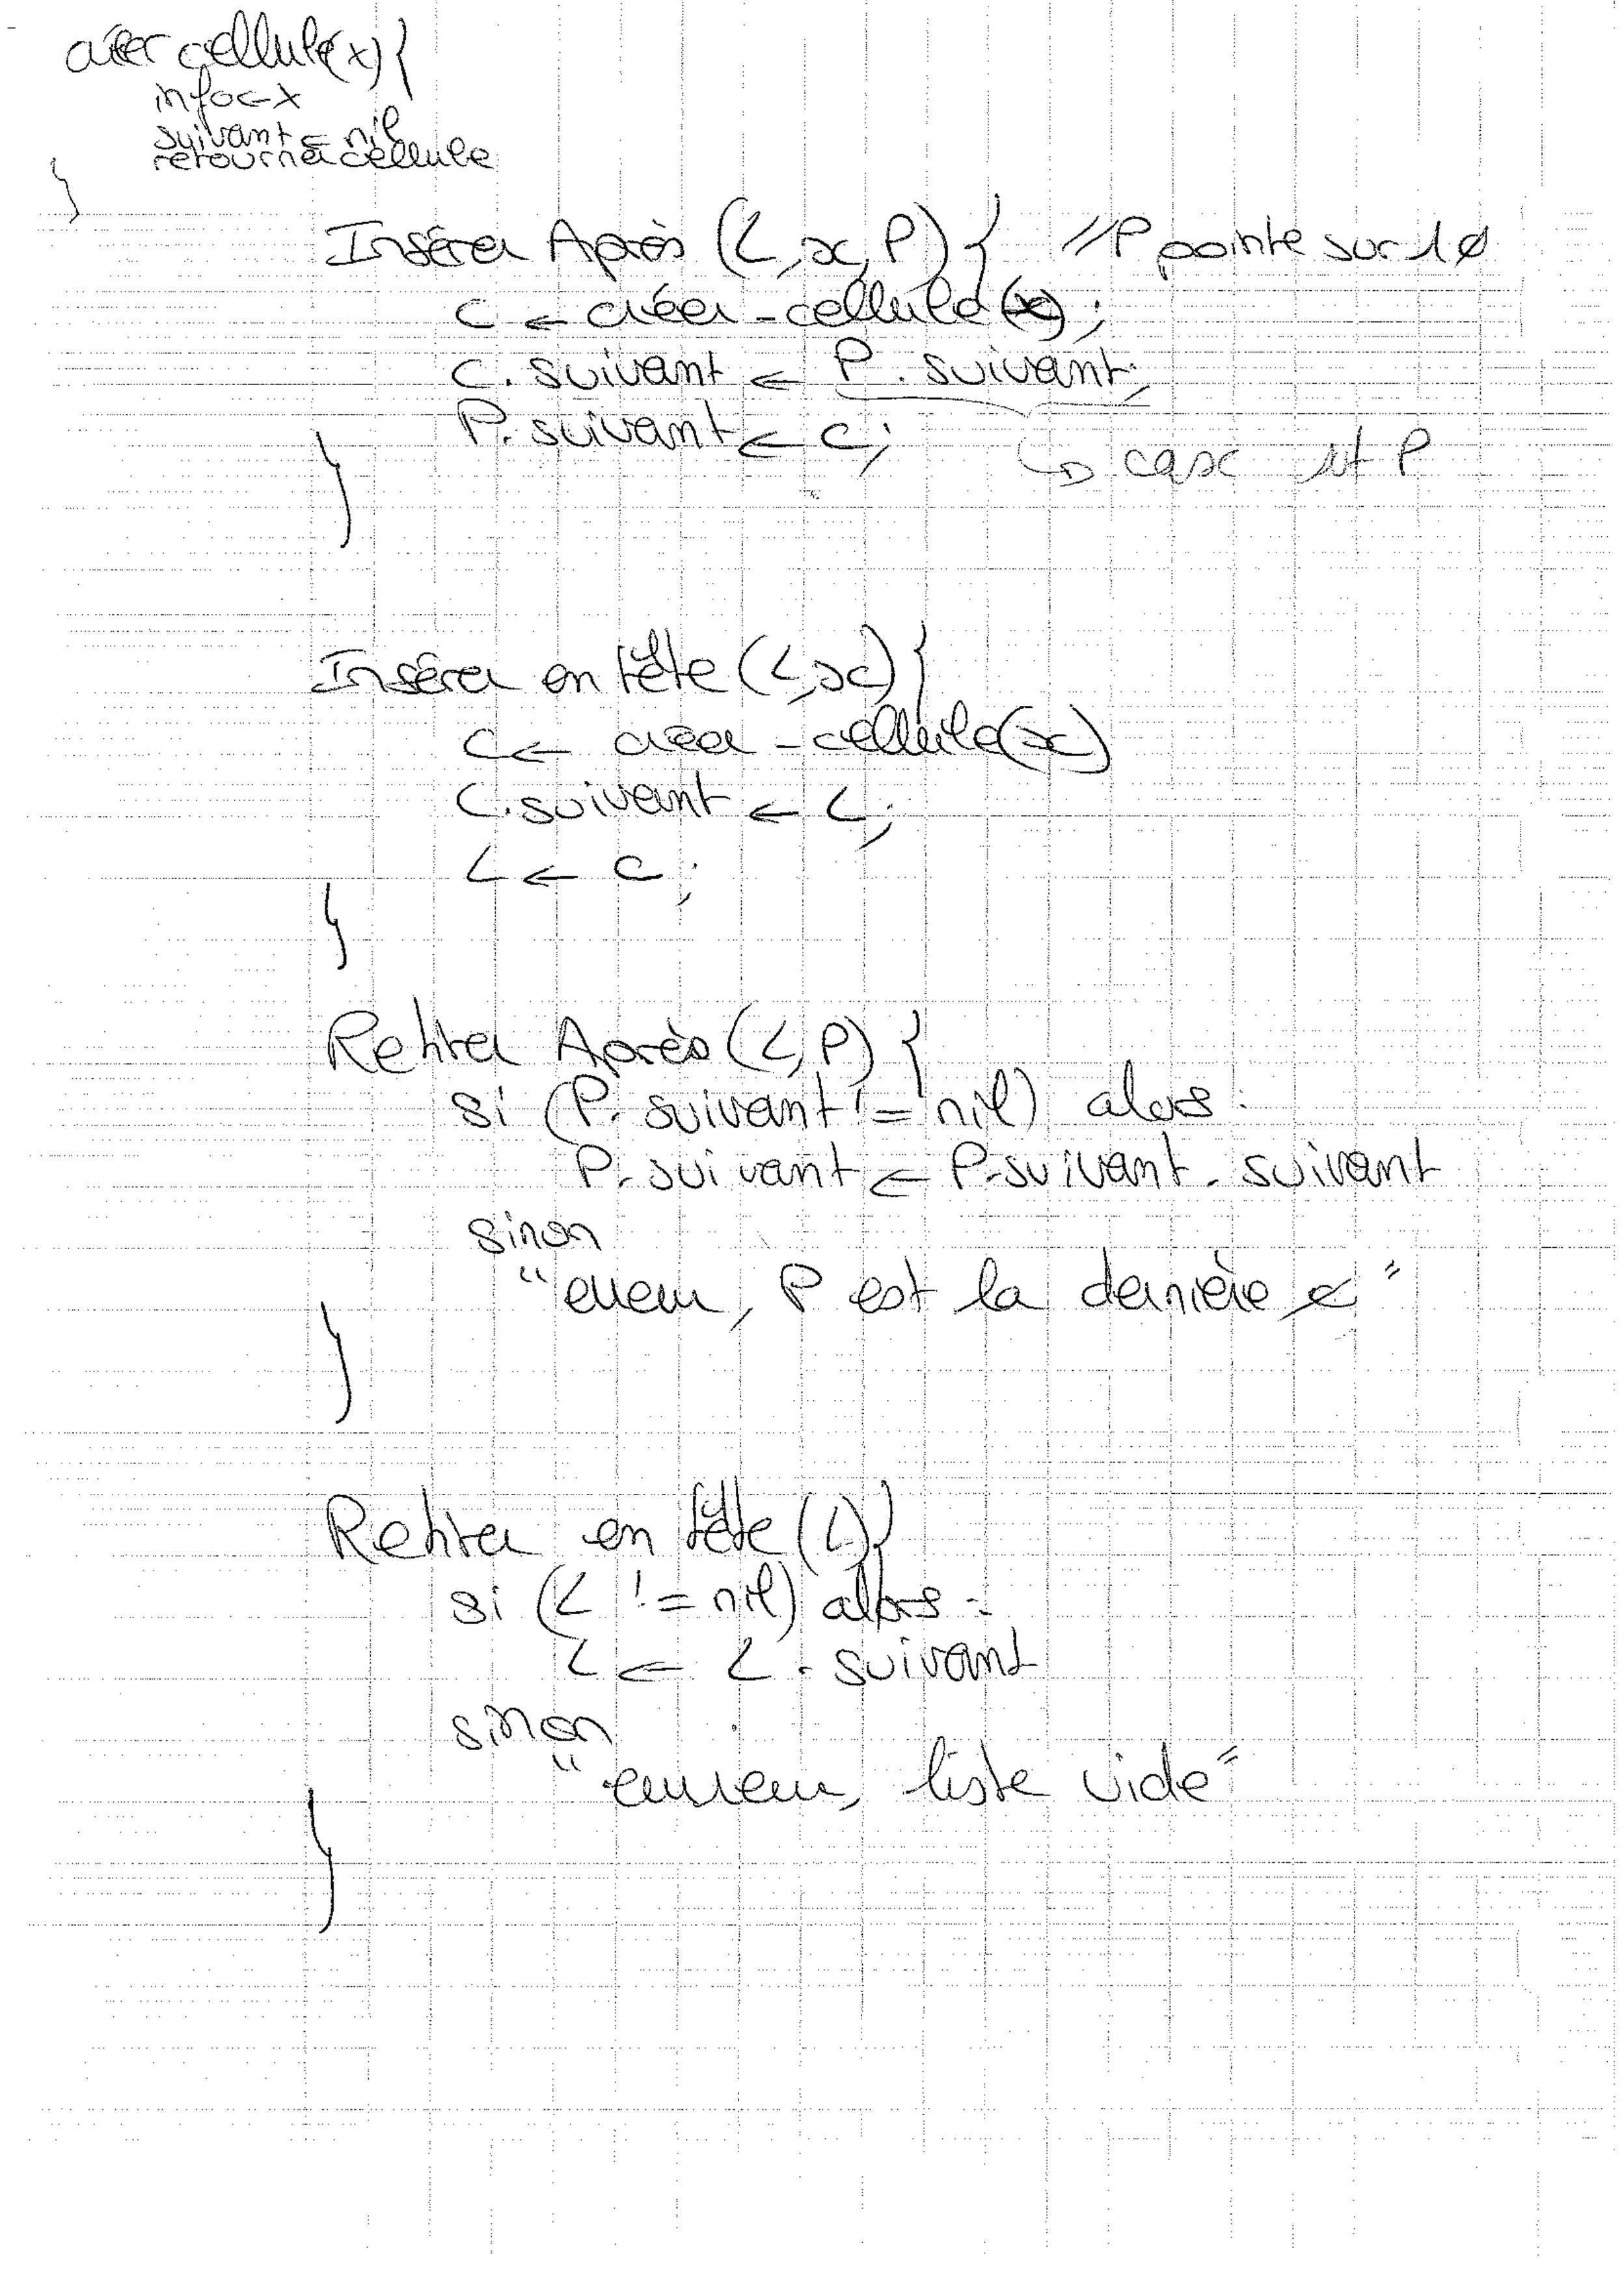 créer cellule(x) {
info ← x
suivant ← nil
retourner cellule
}
Insérer Après (L, x, P) { // P pointe sur 1 ø
C ← créer_cellule(x);
C.suivant ← P.suivant;
P.suivant ← C;
↳ case P
}
Insérer en tête (L, x) {
C ← créer_cellule(x)
C.suivant ← L;
L ← C;
}
Retirer Après (L, P) {
si (P.suivant != nil) alors :
P.suivant ← P.suivant.suivant
sinon
"erreur, P est la dernière"
}
Retirer en tête (L) {
si (L != nil) alors :
L ← L.suivant
sinon
"erreur, liste vide"
}